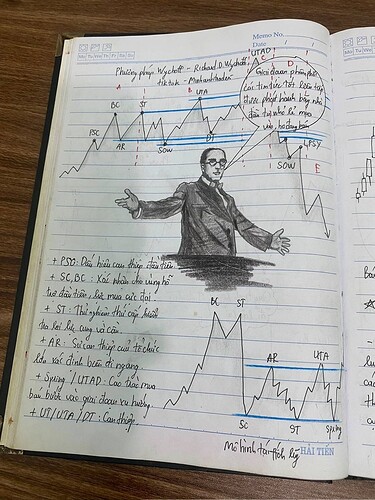 Memo No.
Date
Mo Tu We Th Fr Sa Su
Phương pháp Wyckoff - Richard D. Wyckoff
tiktok - Minhanhtrader
UTAD
A
B
C
D
E
PSC
BC
AR
ST
SOW
UTA
DT
SOW
LPSY
Giai đoạn phân phối
các tin tức tốt liên tục
được phát hành
đầu tư nhỏ lẻ mua
vào
+ PSC: Dấu hiệu can thiệp đầu tiên
+ SC, BC: Xác nhận cho vùng hỗ
trợ đầu tiên, lực mua cực đại
+ ST: Thử nghiệm thứ cấp
cung và cầu
+ AR: Sự can thiệp của tổ chức
lớn xác định biên đi ngang
+ Spring / UTAD: Cao trào mua
bán bước vào giai đoạn xu hướng
+ UT/UTA/DT: Can thiệp
BC
ST
AR
UTA
SC
ST
Spring
Mô hình tái tích lũy
HẢI TIẾN